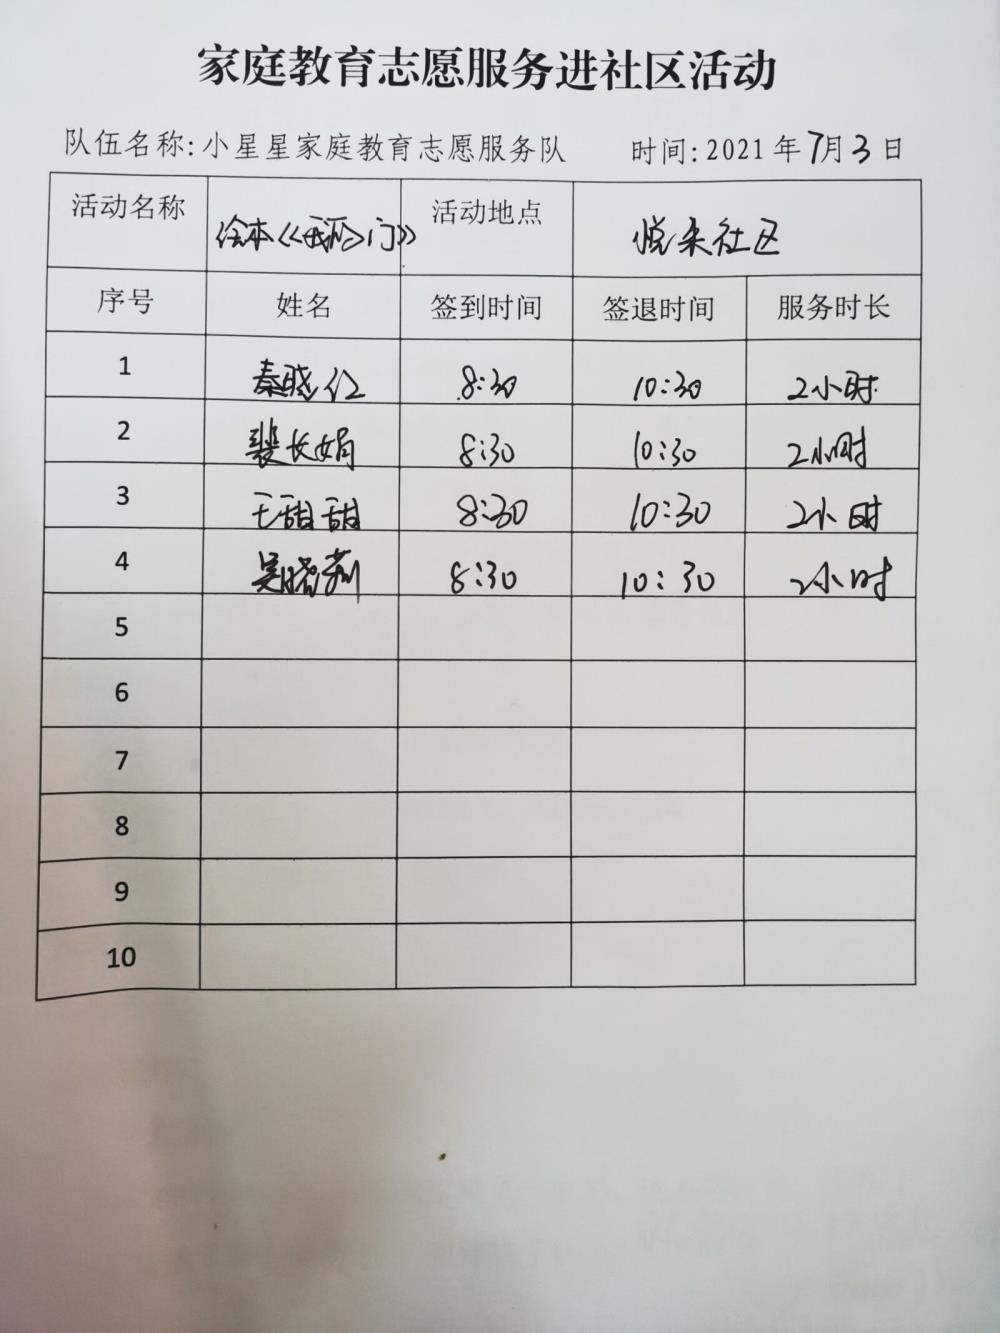 家庭教育志愿服务进社区活动
队伍名称:小星星家庭教育志愿服务队 时间:2021年7月3日
活动名称 绘本 活动地点 悦来社区
序号 姓名 签到时间 签退时间 服务时长
1 秦晓红 8:30 10:30 2小时
2 裴长娟 8:30 10:30 2小时
3 王甜甜 8:30 10:30 2小时
4 吴晓莉 8:30 10:30 2小时
5
6
7
8
9
10